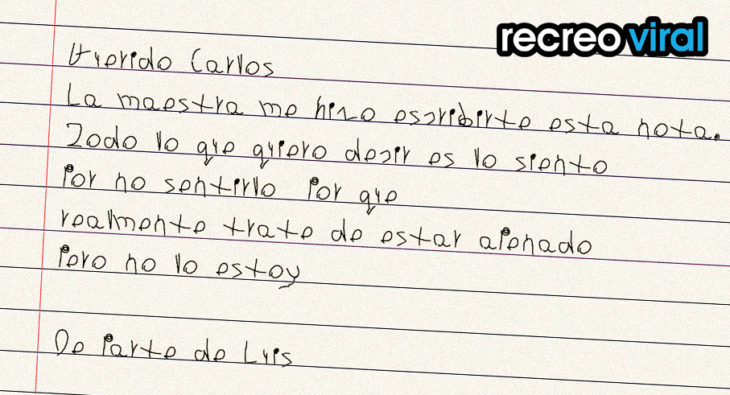 recreoviral
Querido Carlos
La maestra me hizo escribirte esta nota.
Todo lo que quiero decir es lo siento
Por no sentirlo Por que
realmente trate de estar apenado
Pero no lo estoy
De Parte de Luis